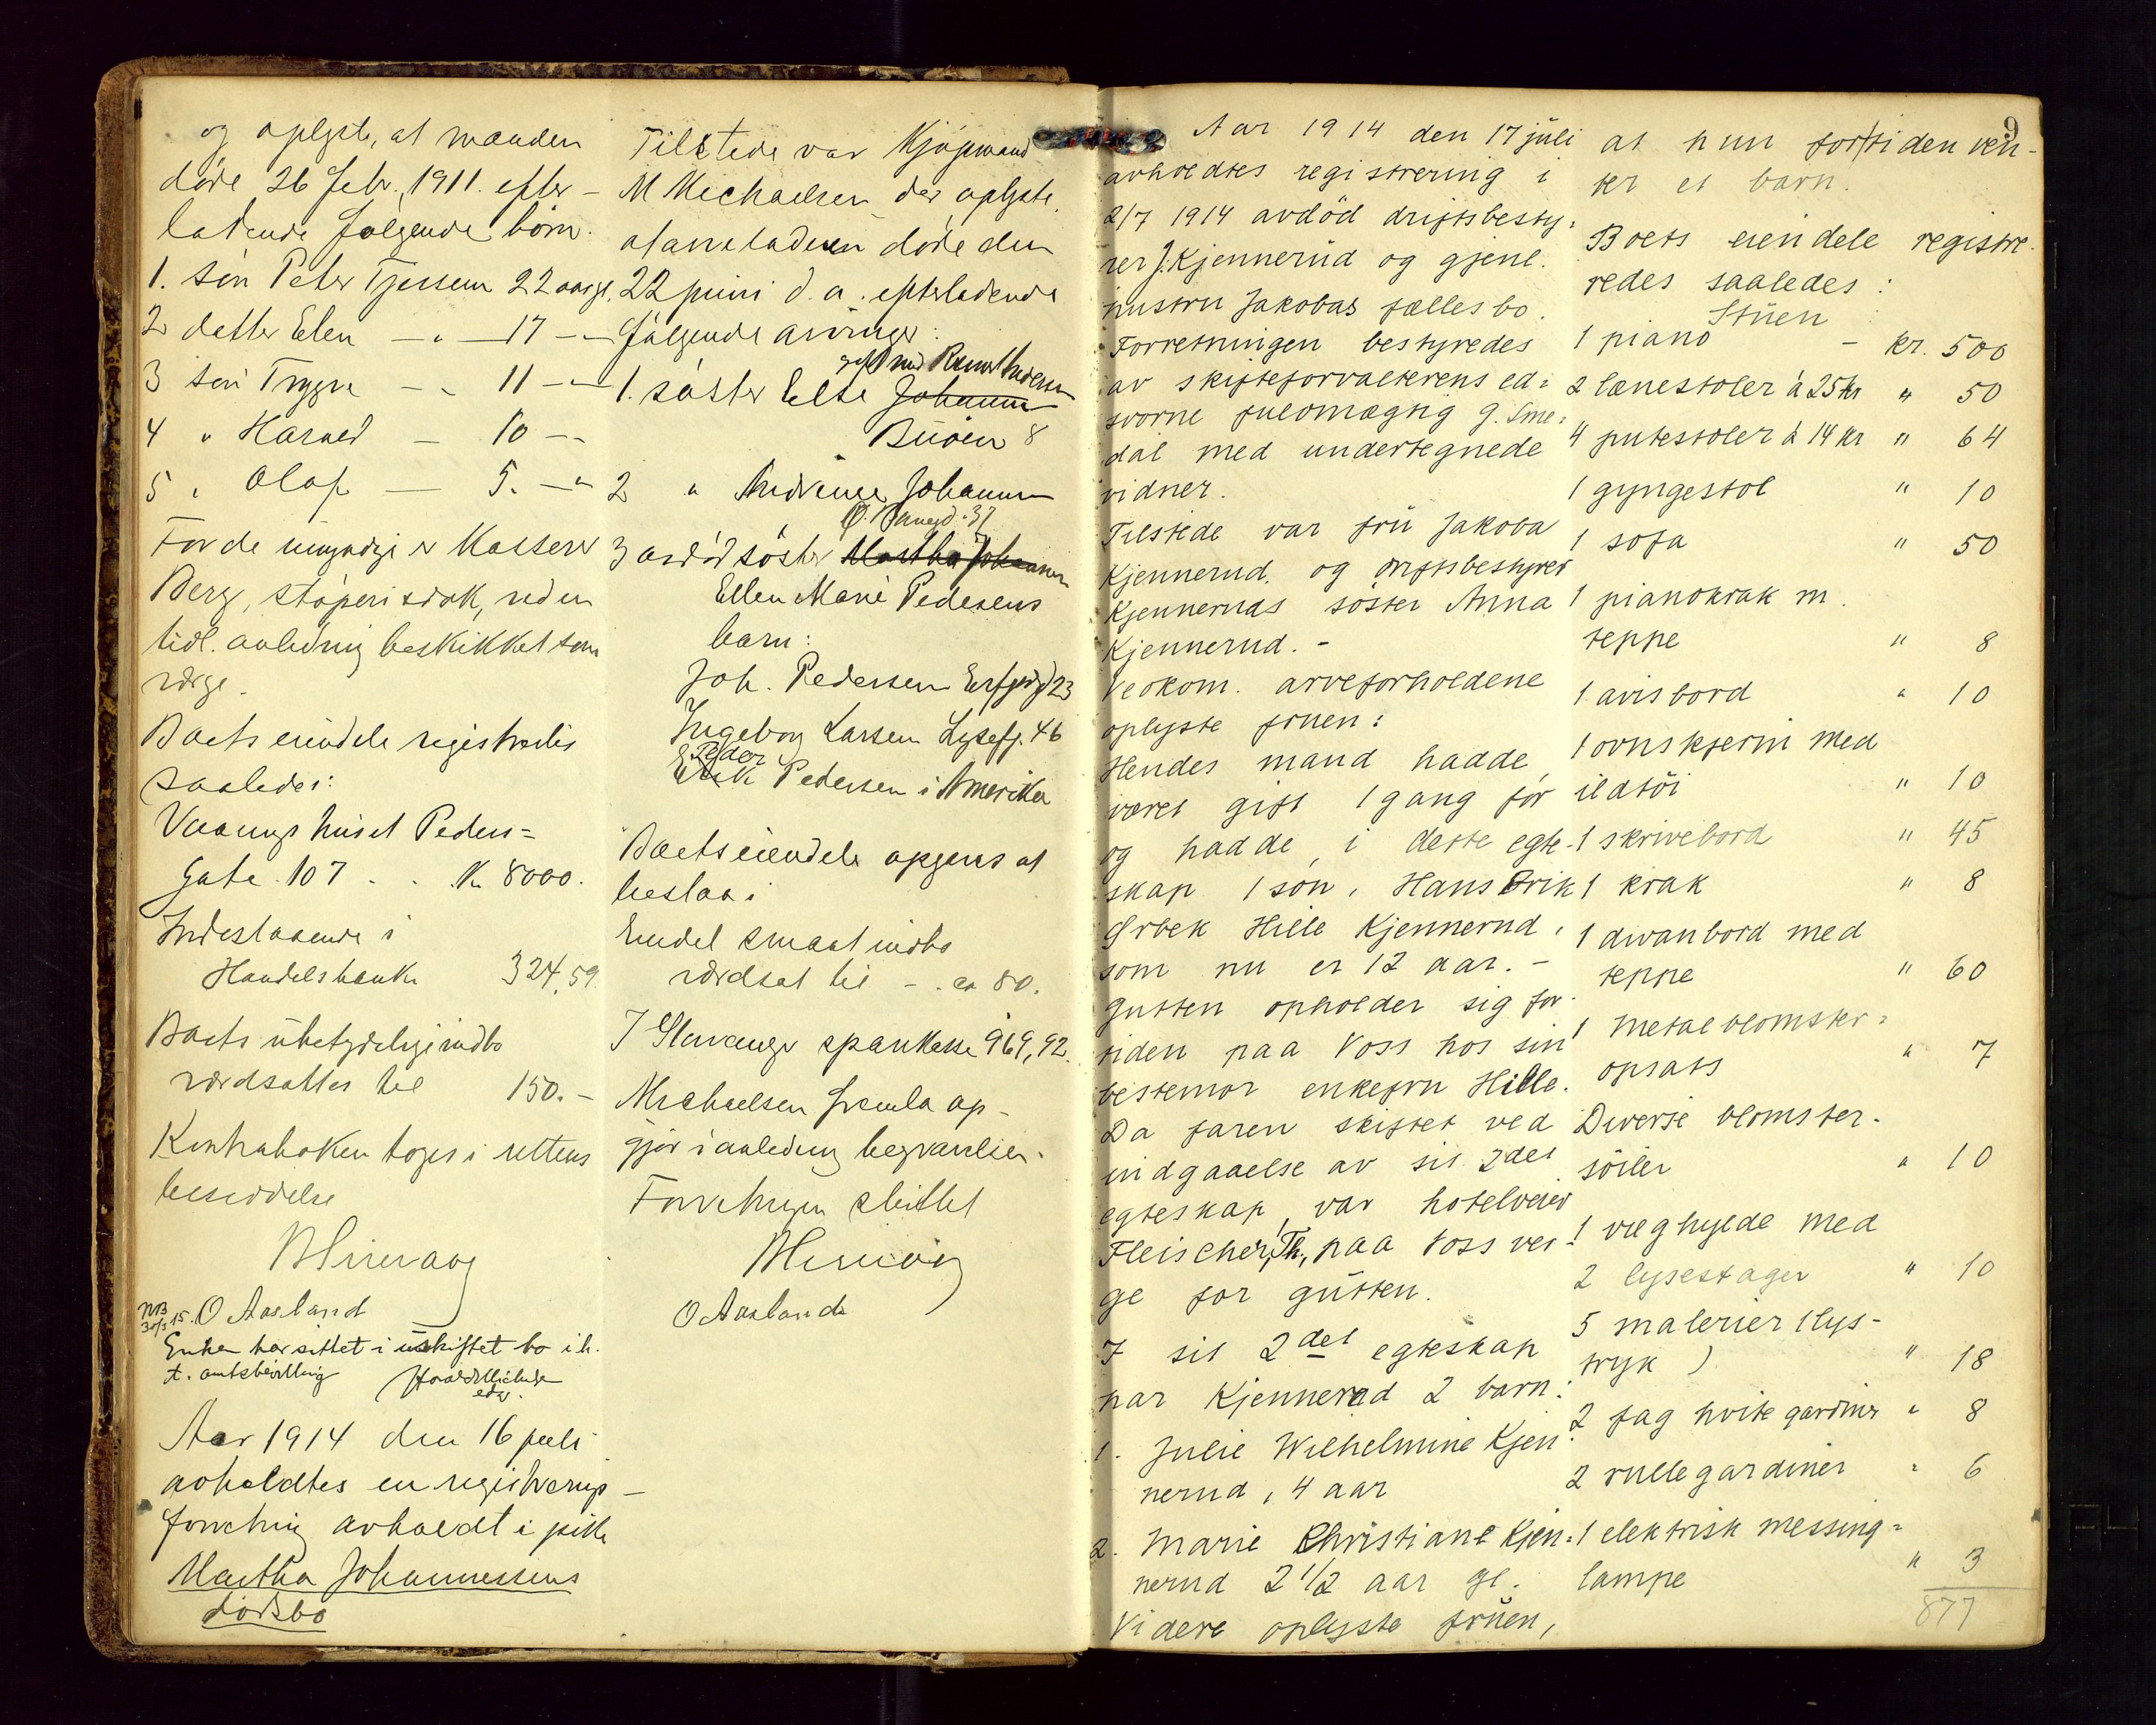 og oplyste, at manden
døde 26 Febr. 1911. efter-
ladende følgende børn.
1. søn Peter Tjessem 22 aar gl.
2 datter Elen — " — 17 —
3 søn Trygve — " 11 —
4 " Harald — 10 —
5 " Olaf — 5. — "
For de umyndige er Kasserer
Berg, støperi, ved en
tidl. anledning beskikket som
værge.
Boets eiendele registrertes
saaledes:
Vaaningshuset Peders=
gate 107 . . Kr 8000.
Indestaaende i
Handelsbank 324,59
Boets ubetydelige indbo
værdsattes til 150.-
Kontraboken toges i rettens
besiddelse
O Aasland
NB 30/3 15.
Enken har sittet i uskiftet bo i h.
t. amtsbevilling
Aar 1914 den 16 juli
avholdtes en registrerings-
forretning avholdt i
Martha Johannessens
dødsbo
Tilstede var Kjøpmand
M Michaelsen der oplyste
at avdøde den
22 juni d. a. efterladende
følgende arvinger:
gift med
1. søster Else Johannes
Buøen 8
2 " Andrine Johannes
Ø. 37
3 avdød søster Martha Johannes
Ellen Marie Pedersens
barn:
Joh. Pedersen 23
Ingeborg Larsen Lysefj. 46
Peder
Erik Pedersen i Amerika
Boets eiendele opgives at
bestaa i
Endel smaat indbo
værdsat til - . ca 80.
I Stavanger sparekasse 969,92.
Michaelsen fremla op-
gjør i anledning begravelsen.
Forretningen sluttet
O Aasland
9
Aar 1914 den 17 juli
avholdtes registrering i
2/7 1914 avdød driftsbesty=
rer J. Kjennerud og gjenl.
hustru Jakobas fællesbo.
Forretningen bestyredes
av skifteforvalterens ed=
svorne fuldmægtig G. Sme=
dal med undertegnede
vidner.
Tilstede var fru Jakoba
Kjennerud. og driftsbestyrer
Kjenneruds søster Anna
Kjennerud. -
Vedkom. arveforholdene
oplyste fruen:
Hendes mand hadde
været gift 1 gang før
og hadde, i dette egte-
skap 1 søn, Hans Erik
Ørbek Hille Kjennerud,
som nu er 12 aar. -
Gutten opholder sig for-
tiden paa Voss hos sin
bestemor enkefru Hille.
Da faren skiftet ved
indgaaelse av sit 2det
egteskap, var hoteleier
Fleischer, Th, paa Voss ver-
ge for gutten.
I sit 2det egteskap
har Kjennerud 2 barn:
1. Julie Wilhelmine Kjen=
nerud, 4 aar
2. Marie Christiane Kjen=
nerud 2 1/2 aar gl.
Videre oplyste fruen,
at hun fortiden ven-
ter et barn.
Boets eiendele registre-
redes saaledes:
Stuen
1 piano - kr. 500
2 lænestoler à 25 kr " 50
4 putestoler à 14 kr " 64
1 gyngestol " 10
1 sofa " 50
1 pianokrak m.
teppe " 8
1 avisbord " 10
1 ovnskjerm med
ildtøi " 10
1 skrivebord " 45
1 krak " 8
1 divanbord med
teppe " 60
1 metalblomster=
opsats " 7
Diverse blomster-
søiler " 10
1 væghylde med
2 lysestager " 10
5 malerier (lys-
tryk) " 18
2 fag hvite gardiner " 8
2 rullegardiner " 6
1 elektrisk messing=
lampe " 3
877